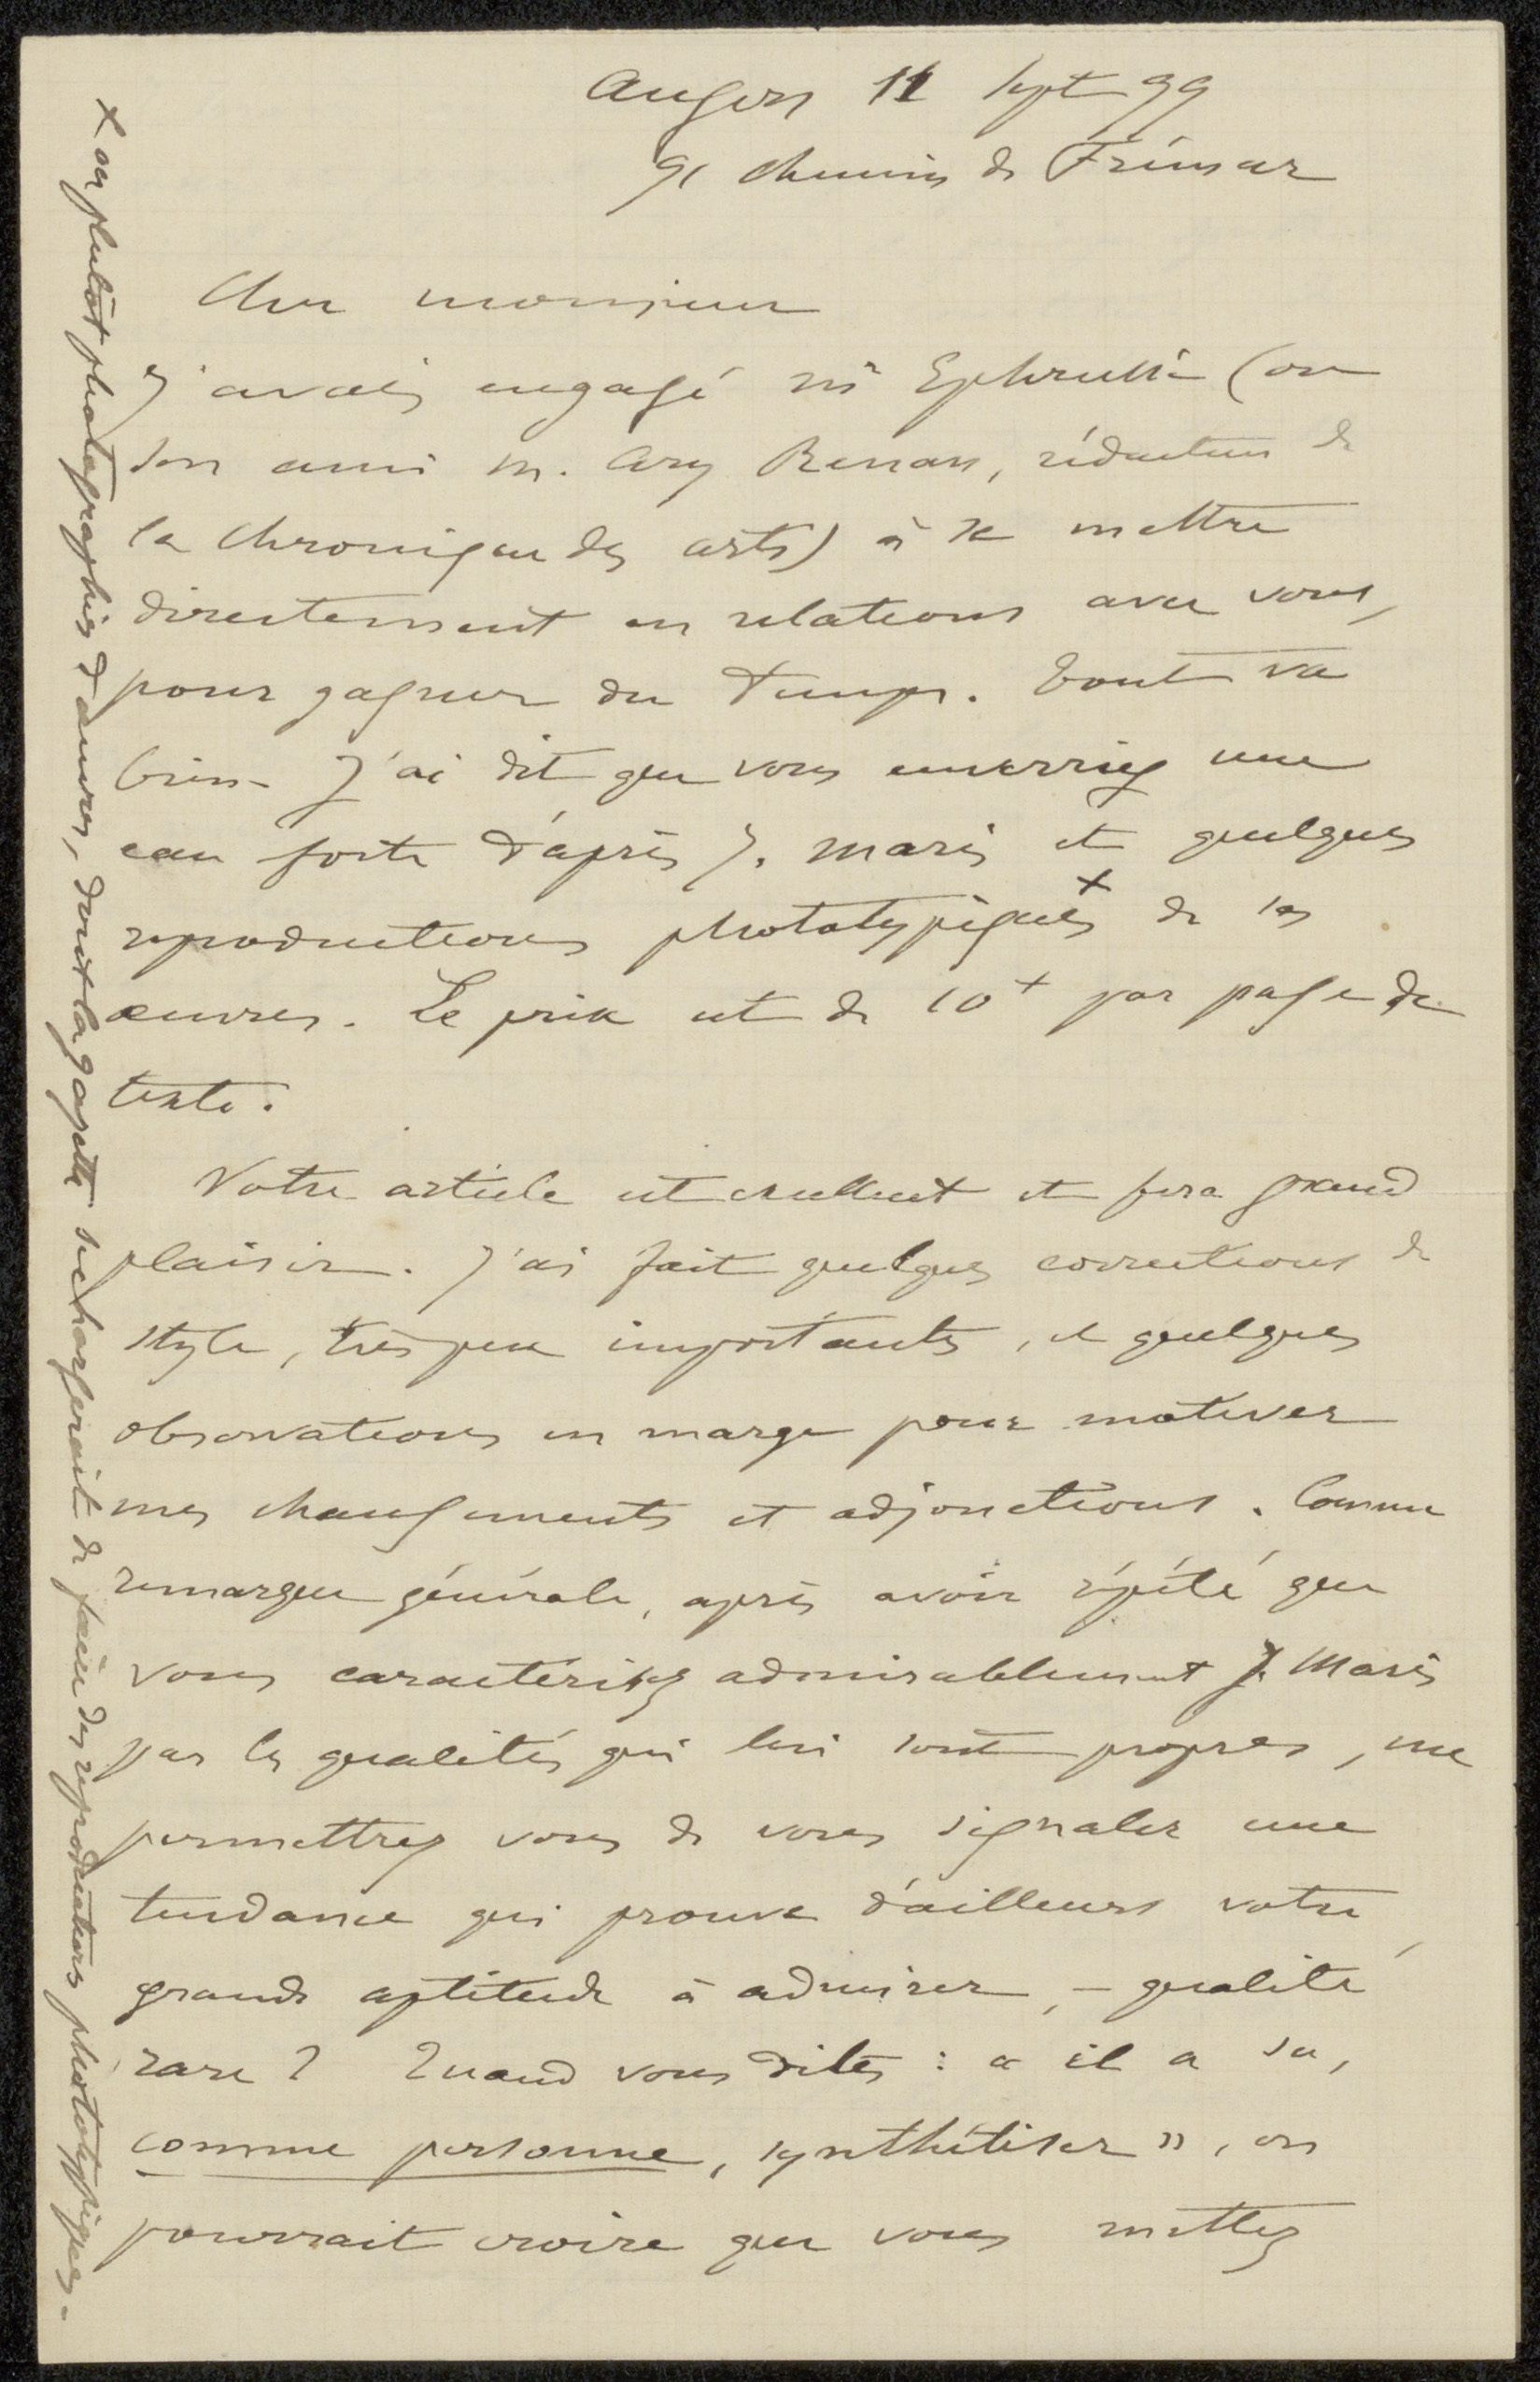 Angers 11 Sept 99
91 chemin de Frémur
Cher monsieur
J'avais engagé mr Ephrussi (ou
son ami m. Ary Renan, rédacteur de
la Chronique des arts) à se mettre
directement en relations avec vous,
pour gagner du temps. Tout va
bien. J'ai dit que vous enverriez une
eau forte d'après J. Maris et quelques
reproductions phototypiques x de ses
œuvres. Le prix est de 10 par page de
texte.
Votre article est excellent et fera grand
plaisir. J'ai fait quelques corrections de
style, très peu importantes, et quelques
observations en marge pour motiver
mes changements et adjonctions. Comme
remarque générale, après avoir répété que
vous caractérisez admirablement J. Maris
par les qualités qui lui sont propres, me
permettrez vous de vous signaler une
tendance qui prouve d'ailleurs votre
grande aptitude à admirer, – qualité
rare ? Quand vous dites : « il a su,
comme personne, synthétiser », on
pourrait croire que vous mettez
x ou plutôt photographies d'œuvres, dont la gazette se chargerait de faire des reproductions phototypiques.